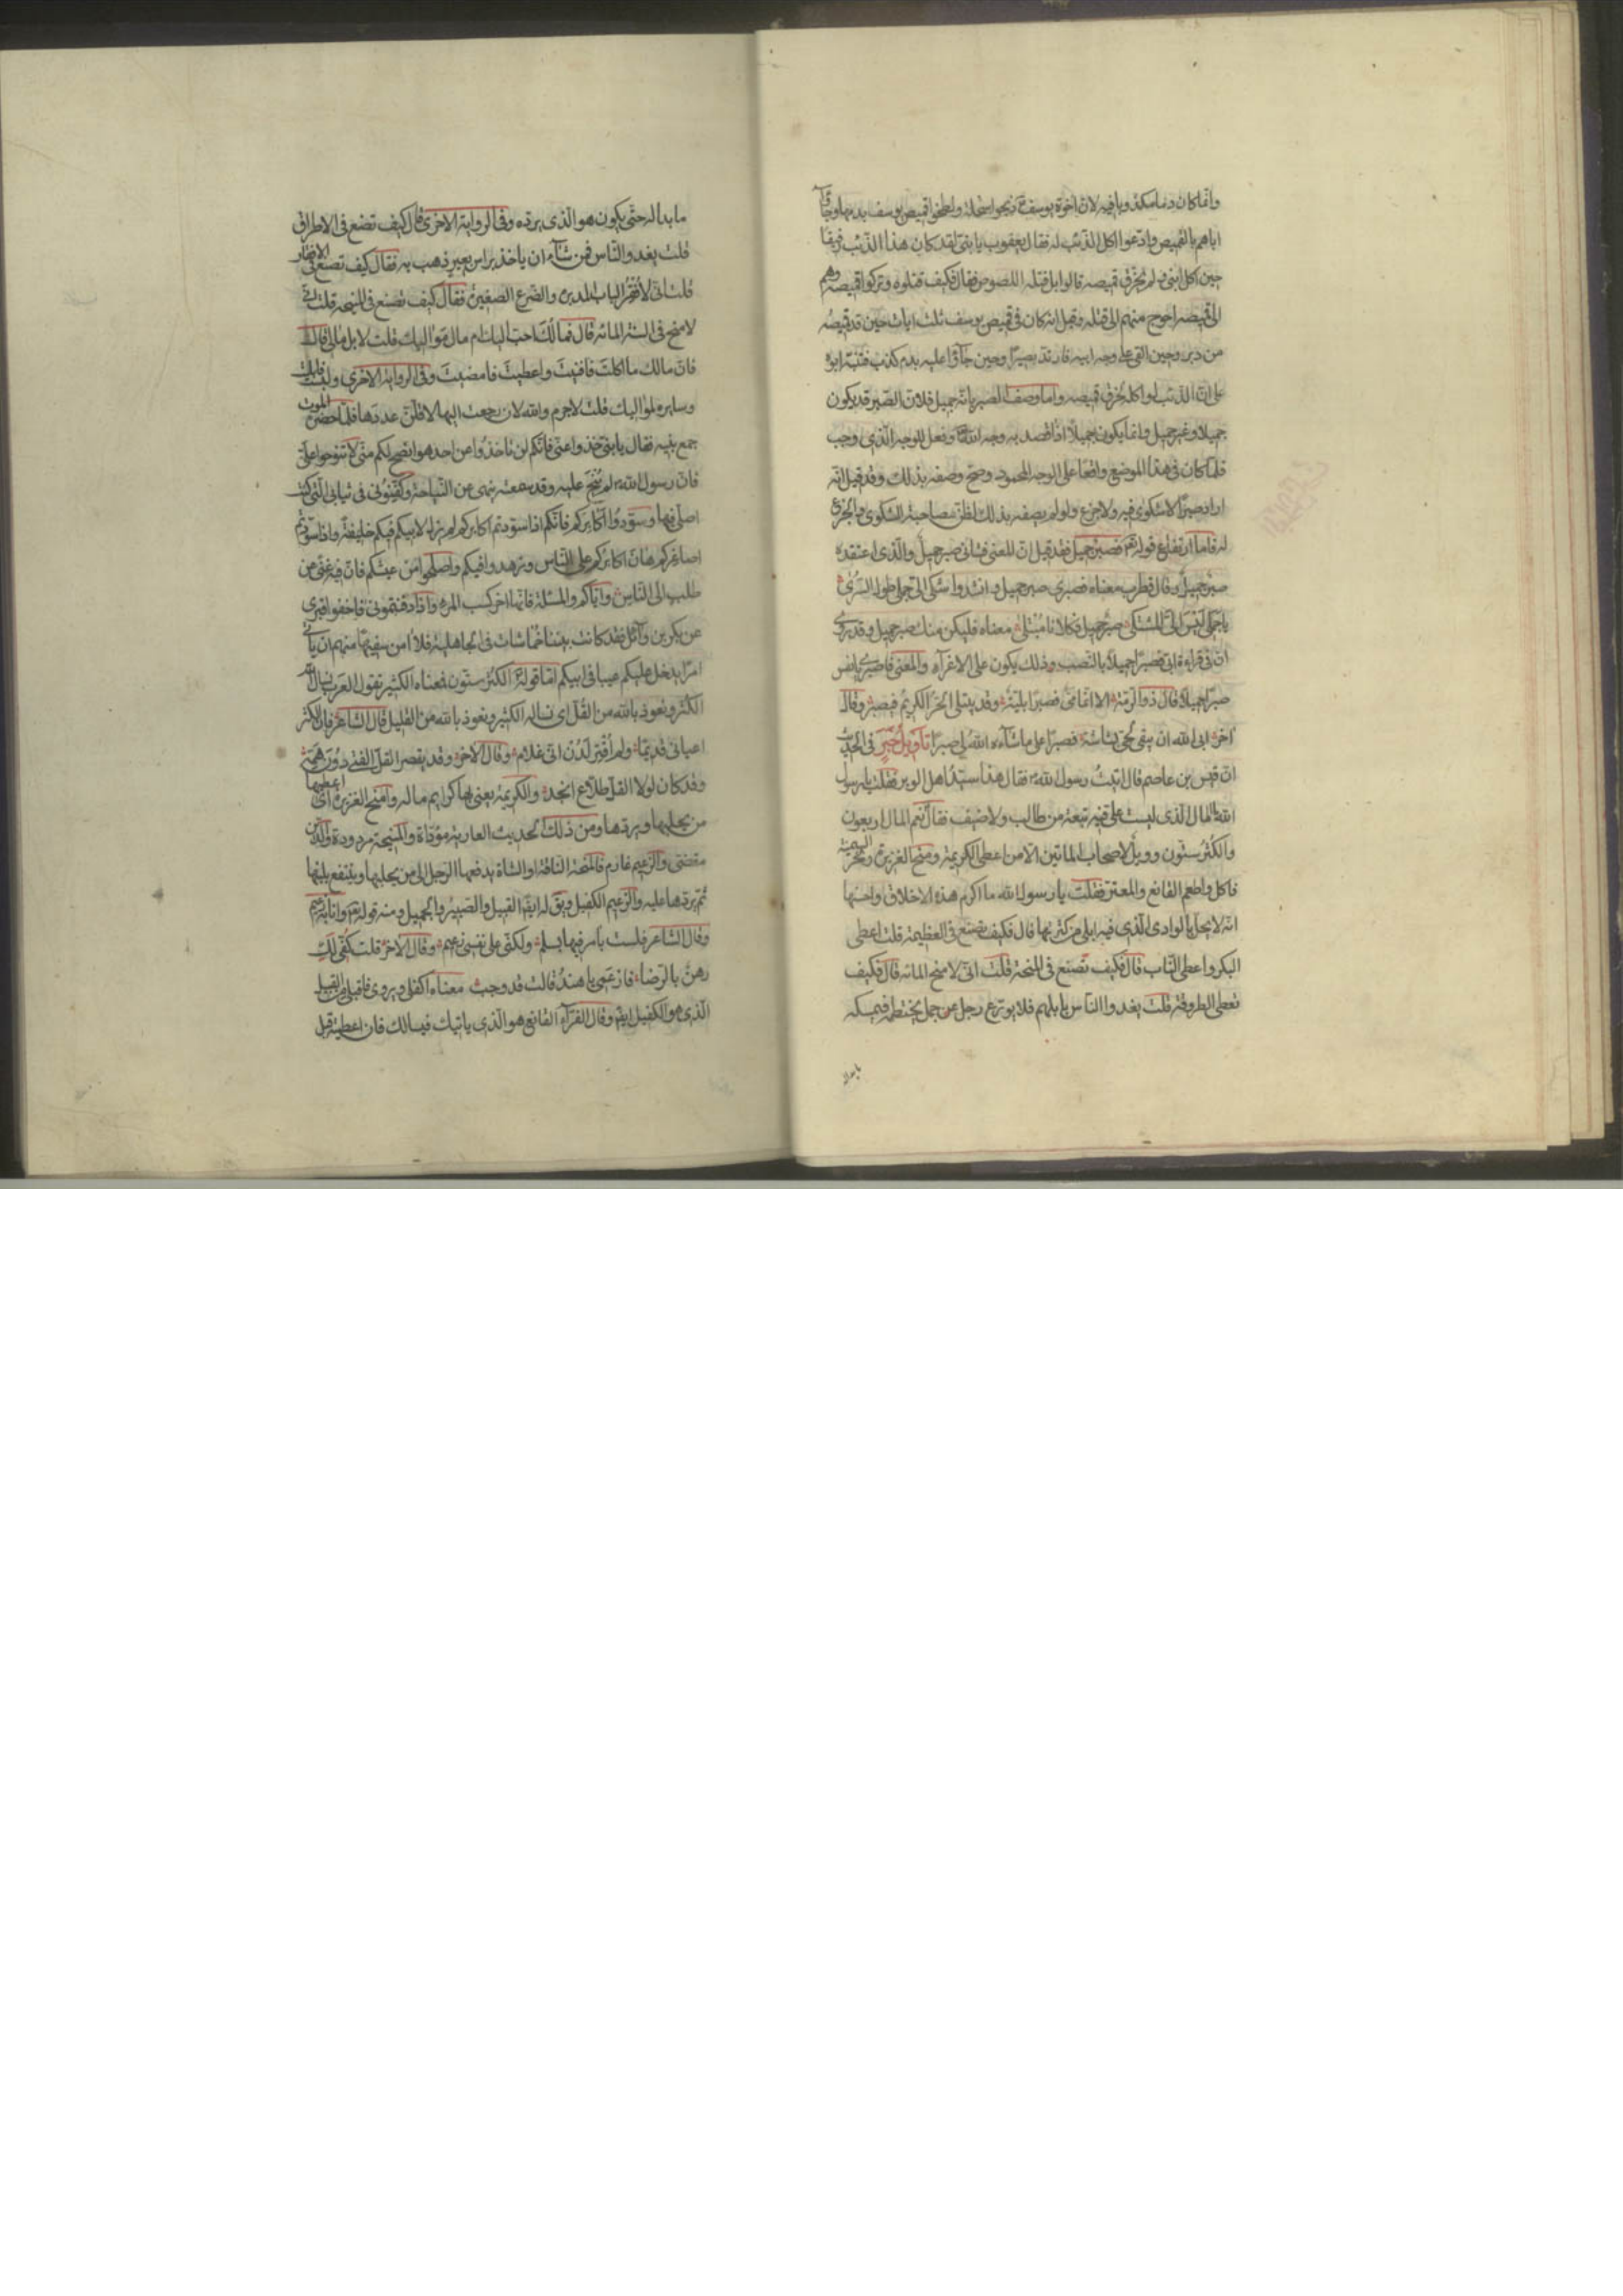 وانما كان دما مكذوبا فيه لان اخوة يوسف ع ذبحوا سخلة ولطخوا قميص يوسف بدمها وجاؤا
اباهم بالقميص وادعوا اكل الذئب له فقال يعقوب يا بني لقد كان هذا الذئب رفيقا
حين اكل ابني ولم يخرق قميصه قالوا بل قتله اللصوص فقال فكيف قتلوه وتركوا قميصه وهم
الى قميصه احوج منهم الى قتله وقيل انه كان في قميص يوسف ثلث ايات حين قد قميصه
من دبر وحين القي على وجه ابيه فارتد بصيرا وحين جاؤا عليه بدم كذب فتنبه ابوه
على ان الذئب لو اكله لخرق قميصه واما وصف الصبر بانه جميل فلان الصبر قد يكون
جميلا وغير جميل وانما يكون جميلا اذا قصد به وجه الله تع وفعل للوجه الذي وجب
فلما كان في هذا الموضع واقعا على الوجه المحمود وصح وصفه بذلك وقد قيل انه
اراد صبرا لا شكوى فيه ولا جزع ولو لم يصفه بذلك لظن مصاحبة الشكوى والجزع
له فاما ارتفاع قوله تع فصبر جميل فقد قيل ان المعنى فشاني صبر جميل والذي اعتقده
صبر جميل وقال قطرب معناه فصبري صبر جميل وانشدوا شكى الي جملي طول السرى
يا جملي ليس الي المشتكى صبر جميل فكلانا مبتلى معناه فليكن منك صبر جميل وقد روي
ان في قراءة ابي فصبرا جميلا بالنصب وذلك يكون على الاغراء والمعنى فاصبري يا نفس
صبرا جميلا قال ذو الرمة الا انما مي فصبرا بلية وقد يبتلى الحر الكريم فيصبر وقال
اخر ابى الله ان يبقي لحي بشاشة فصبرا على ما شاءه الله لي صبرا تأويل خبر في الحديث
ان قيس بن عاصم قال اتيت رسول الله ص فقال هذا سيد اهل الوبر فقلت يا رسول
الله المال الذي ليست علي فيه تبعة من طالب ولا ضيف فقال نعم المال اربعون
والكثر ستون وويل لاصحاب المائتين الا من اعطى الكريمة ومنح الغزيرة ونحر السمينة
فاكل واطعم القانع والمعتر فقلت يا رسول الله ما اكرم هذه الاخلاق واحسنها
انه لا يحل بالوادي الذي فيه ابلي من كثرتها قال فكيف تصنع في العظيمة قلت اعطي
البكر واعطي الناب قال فكيف تصنع في المنحة قلت اني لامنح المائة قال فكيف
تعطي الطروقة قلت يغدو الناس بابلهم فلا يوزع رجل عن جمل يختطمه فيمسكه
ما بدا له حتى يكون هو الذي يرده وفي الرواية الاخرى قال كيف تصنع في الاطراق
قلت يغدو الناس فمن شاء ان ياخذ براس بعير ذهب به فقال كيف تصنع في الافقار
قلت اني لافقر الناب المدبرة والضرع الصغيرة فقال كيف تصنع في المنيحة قلت اني
لامنح في السنة المائة قال فمالك احب اليك ام مال مواليك قلت لا بل مالي قال
فان مالك ما اكلت فافنيت واعطيت فامضيت وفي الرواية الاخرى ولبست فابليت
وسايره لمواليك قلت لا جرم والله لان رجعت اليها لاقلن عددها فلما حضره الموت
جمع بنيه فقال يا بني خذوا عني فانكم لن تاخذوا من احد هو انصح لكم مني لا تنوحوا علي
فان رسول الله ص لم ينح عليه وقد سمعته ينهى عن النياحة وكفنوني في ثيابي التي كنت
اصلي فيها وسودوا اكابركم فانكم اذا سودتم اكابركم لم يزل لابيكم فيكم خليفة واذا سودتم
اصاغركم هان اكابركم على الناس وزهدوا فيكم واصلحوا من عيشكم فان فيه غنى عن
طلب الى الناس واياكم والمسئلة فانها اخر كسب المرء واذا دفنتموني فاخفوا قبري
عن بكر بن وائل فقد كانت بيننا خماشات في الجاهلية فلا امن سفيها منهم ان ياتي
امرا يدخل عليكم عيبا في ابيكم اما قوله الكثر ستون فمعناه الكثير تقول العرب نسال الله
الكثر ونعوذ بالله من القل اي نساله الكثير ونعوذ بالله من القليل قال الشاعر فان الكثر
اعياني قديما ولم اقتر لدن اني غلام وقال الاخر وقد يقصر القل الفتى دون همه
وقد كان لولا القل طلاع انجد والكريمة يعني بها كرايم ماله وامنح الغزيرة اي اعطيها
من يحلبها ويردها ومن ذلك الحديث العارية مؤداة والمنيحة مردودة والدين
مقضي والزعيم غارم فالمنحة الناقة او الشاة يدفعها الرجل الى من يحلبها وينتفع بلبنها
ثم يردها عليه والزعيم الكفيل ويق له ايضا القبيل والصبير والحميل ومنه قوله تع وانا به زعيم
وقال الشاعر فلست بامر فيها بسلم ولكني على نفسي زعيم وقال الاخر قلت كفي لك
رهن بالرضا فازعمي يا هند قالت قد وجب معناه اكفلي ويروى فاقبلي من القبيل
الذي هو الكفيل ايضا وقال الفراء القانع هو الذي ياتيك فيسالك فان اعطيته قبل